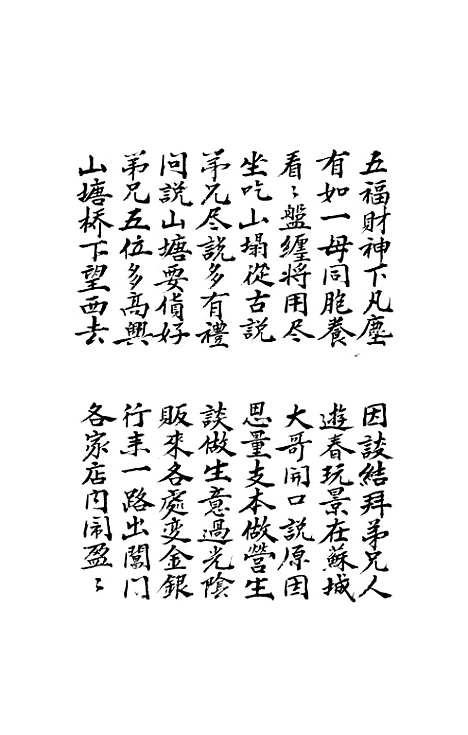 五福財神下凡塵　因談結拜弟兄人
有如一母同胞養　遊春玩景在蘇城
看〻盤纏將用尽　大哥開口説原因
坐吃山塌從古説　思量支本做營生
弟兄尽説多有禮　談做生意過光陰
问説山塘要貨好　販來各處变金銀
弟兄五位多高興　行来一路出閶门
山塘桥下望西去　各家店内闹盈〻